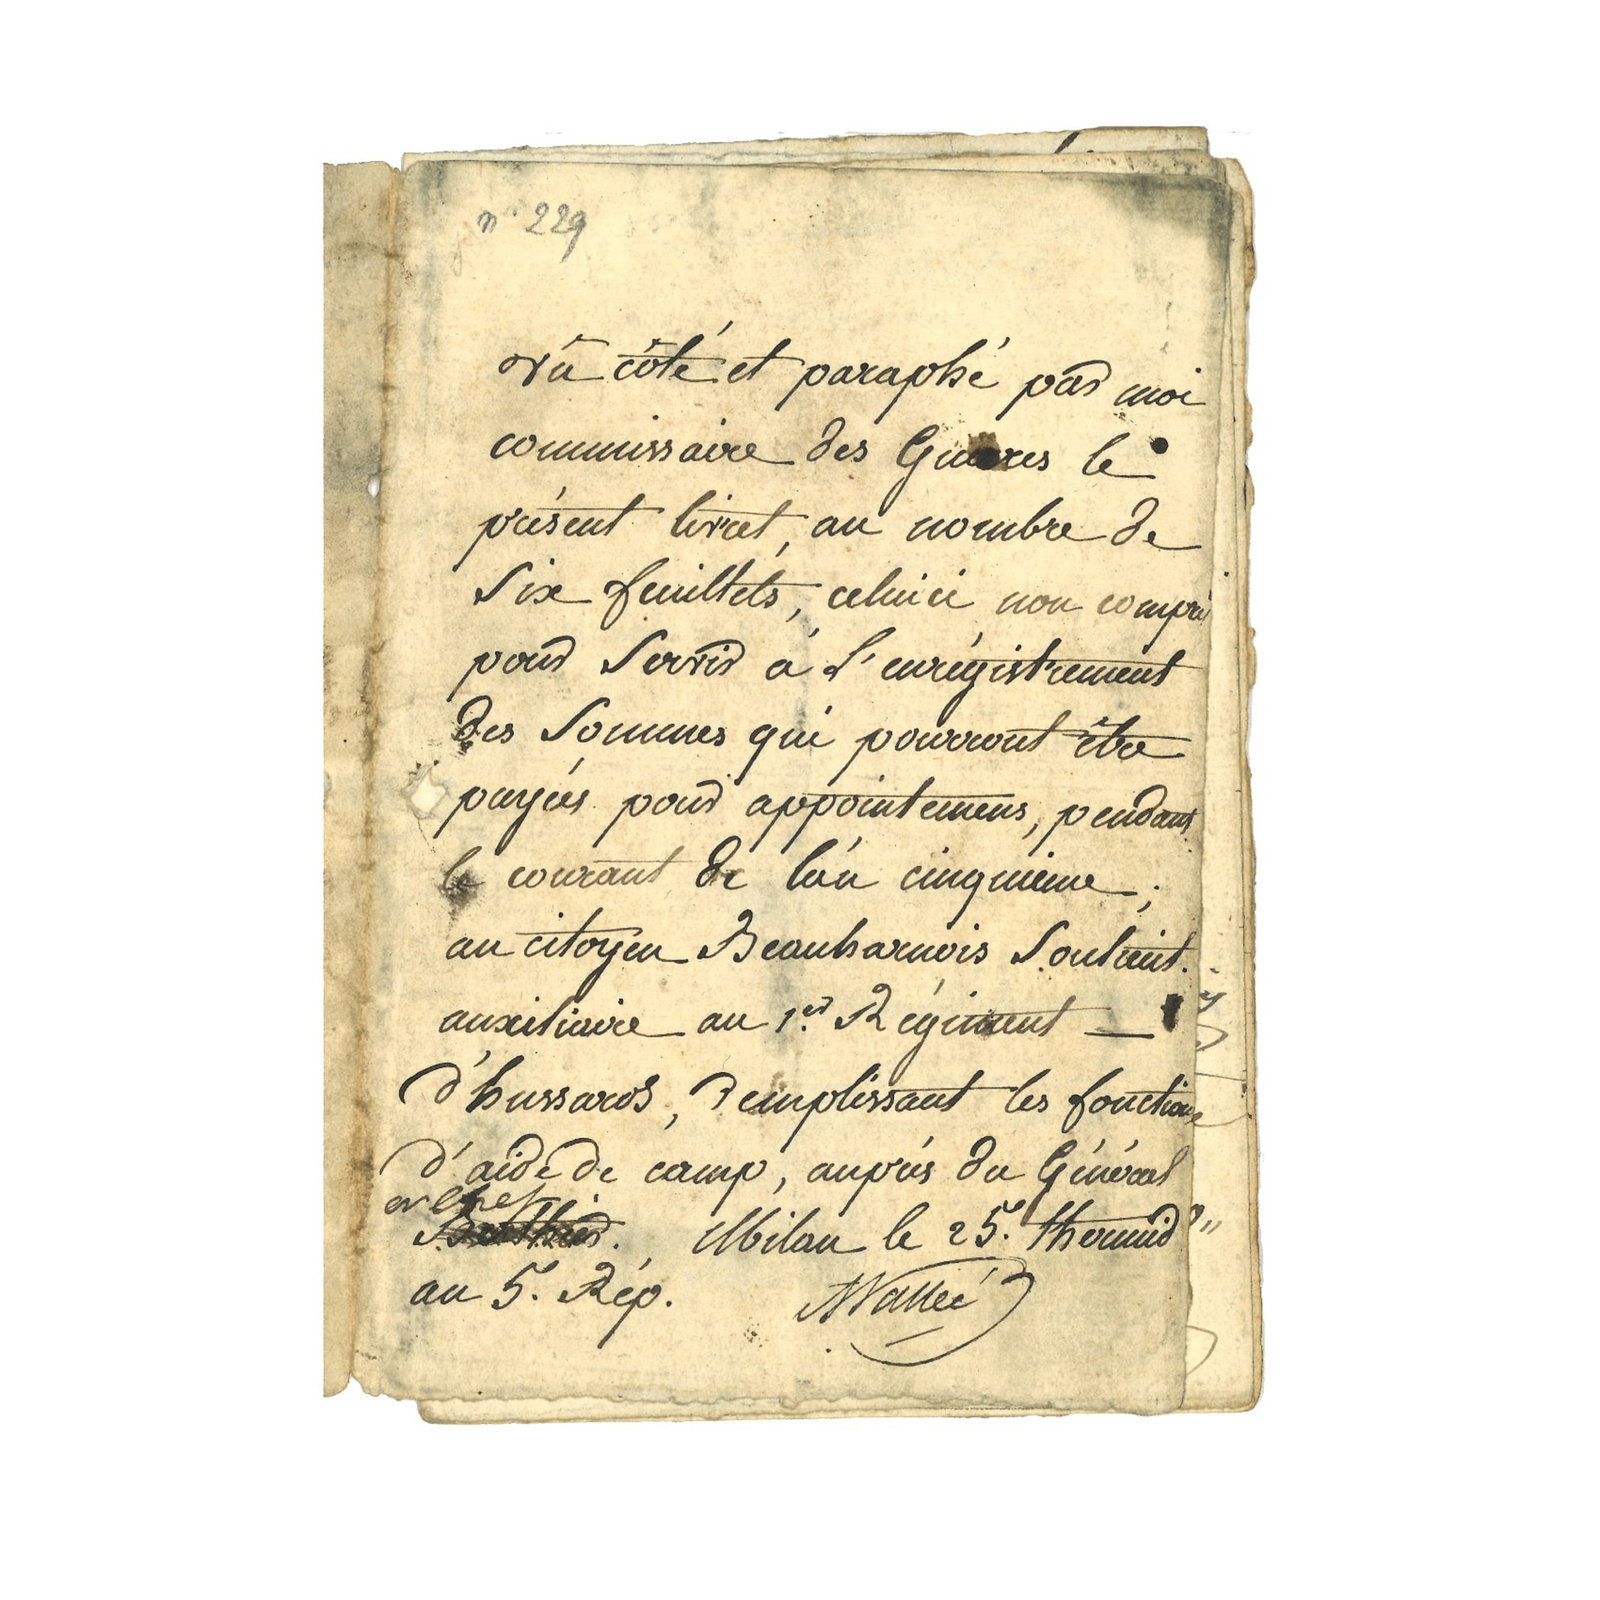 n° 229
Vû côté et paraphé par moi
commissaire des Guerres le
présent livret, au nombre de
Six feuillets, celui ci non compris
pour Servir à l'enrégistrement
des Sommes qui pourront être
payés pour appointemens, pendant
le courant de l'an cinquieme;
au citoyen Beauharnois Soulieut.
auxiliaire au 1er Régiment —
d'hussards, remplissant les fonctions
d'aide de camp, auprès du Général
en chef
Berthier. Milan le 25. thermidor
an 5. Rép. Vallée